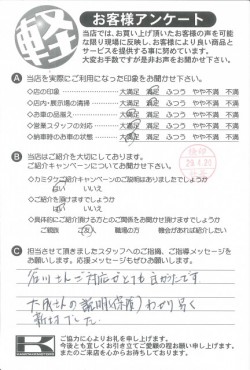 軽
お客様アンケート
当店では、お買い上げ頂いたお客様の声を可能
な限り現場に反映し、お客様により良い商品と
サービスを提供する事に努めています。
大変お手数ですが是非お声をお聞かせ下さい。
A 当店を実際にご利用になった印象をお聞かせ下さい。
◇店の印象 大満足 満足 ふつう やや不満 不満
◇店内・展示場の清掃 大満足 満足 ふつう やや不満 不満
◇お車の品揃え 大満足 満足 ふつう やや不満 不満
◇営業スタッフの対応 大満足 満足 ふつう やや不満 不満
◇納車時のお車の状態 大満足 満足 ふつう やや不満 不満
B 当店はご紹介を大切にしております。
ご紹介キャンペーンについてお聞かせ下さい。
◇カミタケご紹介キャンペーンのご説明はありましたでしょうか
はい いいえ
◇ご紹介を頂けますでしょうか
はい いいえ
◇具体的にご紹介頂ける方とのご関係をお聞かせ頂けますでしょうか
ご親族 ご友人 職場の方 機会があれば紹介したい
C 担当させて頂きましたスタッフへのご指摘、ご指導メッセージを
お願いします。応援メッセージもお待ちしております。
石川さんご対応がとても良かったです
わかり易く
ご協力に心よりお礼を申し上げます。
今後とも宜しくお引き立てご愛顧の程お願い申し上げます。
またのご来店を心からお待ちしております。